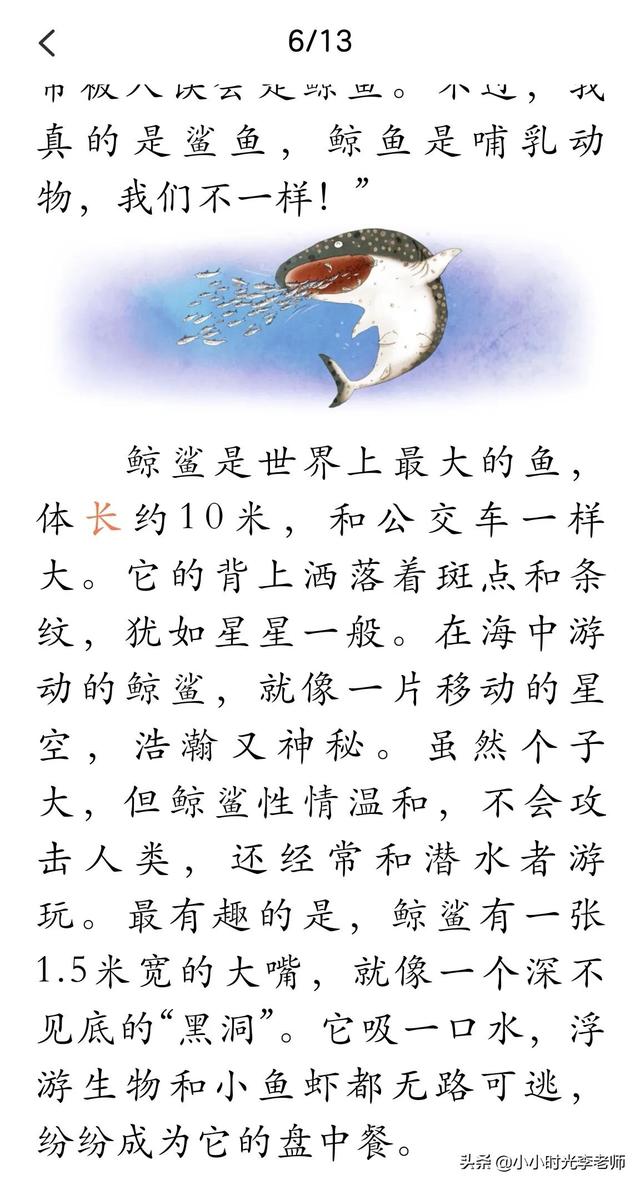 6/13
常被人误会是鲸鱼。不过，我
真的是鲨鱼，鲸鱼是哺乳动
物，我们不一样！”
鲸鲨是世界上最大的鱼，
体长约10米，和公交车一样
大。它的背上洒落着斑点和条
纹，犹如星星一般。在海中游
动的鲸鲨，就像一片移动的星
空，浩瀚又神秘。虽然个子
大，但鲸鲨性情温和，不会攻
击人类，还经常和潜水者游
玩。最有趣的是，鲸鲨有一张
1.5米宽的大嘴，就像一个深不
见底的“黑洞”。它吸一口水，浮
游生物和小鱼虾都无路可逃，
纷纷成为它的盘中餐。
头条 @小小时光李老师